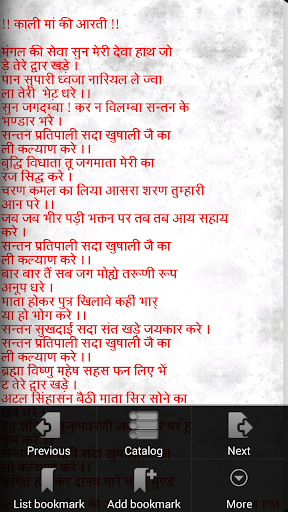 !! काली मां की आरती !!
मंगल की सेवा सुन मेरी देवा हाथ जो
डे तेरे द्वार खड़े ।
पान सुपारी ध्वजा नारियल ले ज्वा
ला तेरी  भेट धरे ।।
सुन जगदम्बा ! कर न विलम्बा सन्तन के
भण्डार भरे ।
सन्तन प्रतिपाली सदा खुषाली जै का
ली कल्याण करे ।।
बुद्धि विधाता तू जगमाता मेरी का
रज सिद्ध करे ।
चरण कमल का लिया आसरा शरण तुम्हारी
आन परे ।।
जब जब भीर पड़ी भक्तन पर तब तब आय सहाय
करे ।
सन्तन प्रतिपाली सदा खुषाली जै का
ली कल्याण करे ।।
बार बार तैं सब जग मोह्ये तरूणी रूप
अनूप धरे ।
माता होकर पुत्र खिलावे कहीं भार्
या हो भोग करे ।।
सन्तन सुखदाई सदा संत खड़े जयकार करे ।
सन्तन प्रतिपाली सदा खुषाली जै का
ली कल्याण करे ।।
ब्रह्मा विष्णु महेष सहस फन लिए भें
ट तेरे द्वार खड़े ।
अटल सिंहासन बैठी माता सिर सोने का
छत्र धरे
Previous
Catalog
Next
List bookmark
Add bookmark
More